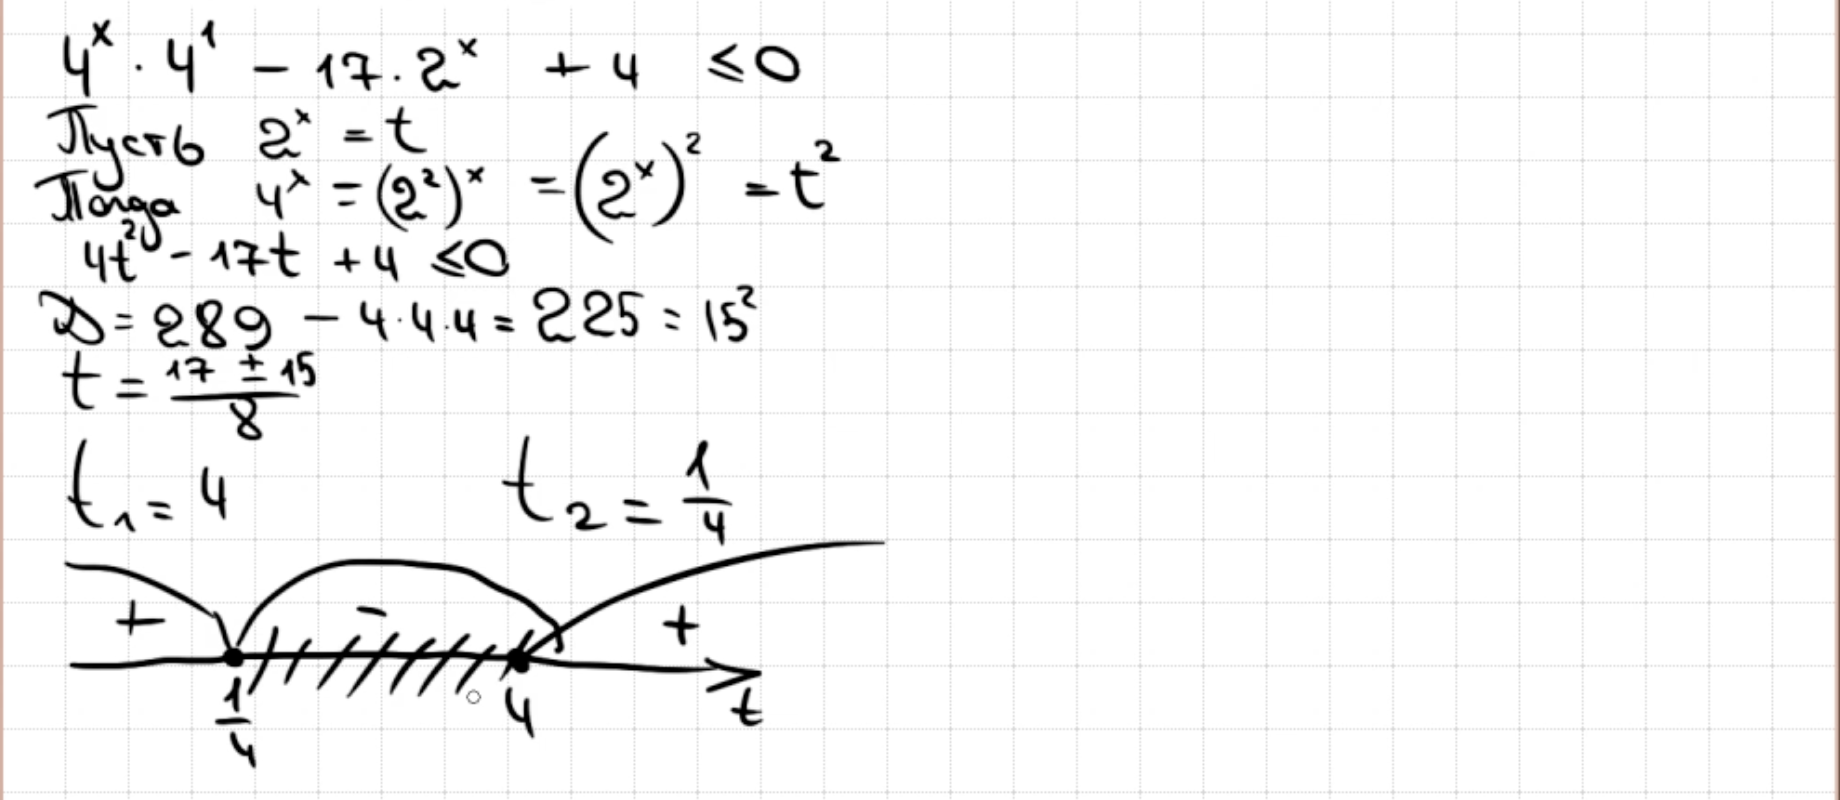 4ˣ · 4¹ - 17 · 2ˣ + 4 ≤ 0
Пусть 2ˣ = t
Тогда 4ˣ = (2²)ˣ = (2ˣ)² = t²
4t² - 17t + 4 ≤ 0
D = 289 - 4·4·4 = 225 = 15²
t = (17 ± 15)/8
t₁ = 4 t₂ = 1/4
+ - +
1/4 4 t